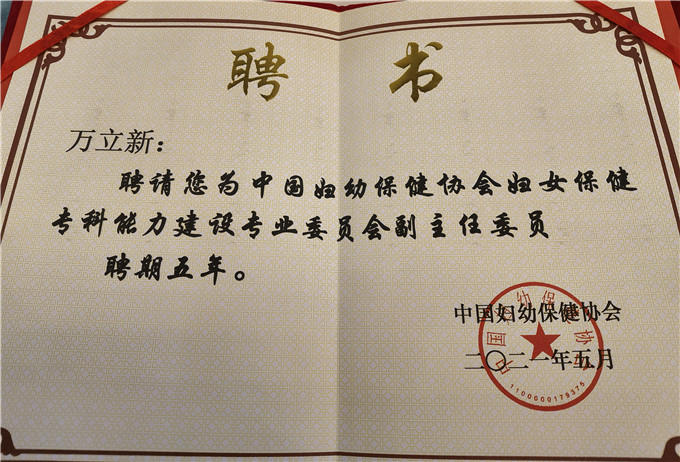 聘书
万立新：
聘请您为中国妇幼保健协会妇女保健
专科能力建设专业委员会副主任委员
聘期五年。
中国妇幼保健协会
二〇二一年五月
中国妇幼保健协会
1100000179375